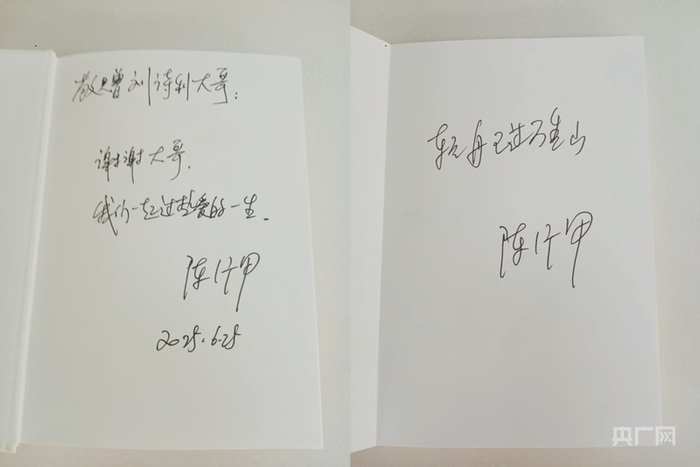 敬赠刘诗利大哥:
谢谢大哥.
我们一起过热爱的一生.
陈行甲
2025.6.25
轻舟已过万重山
陈行甲
央广网